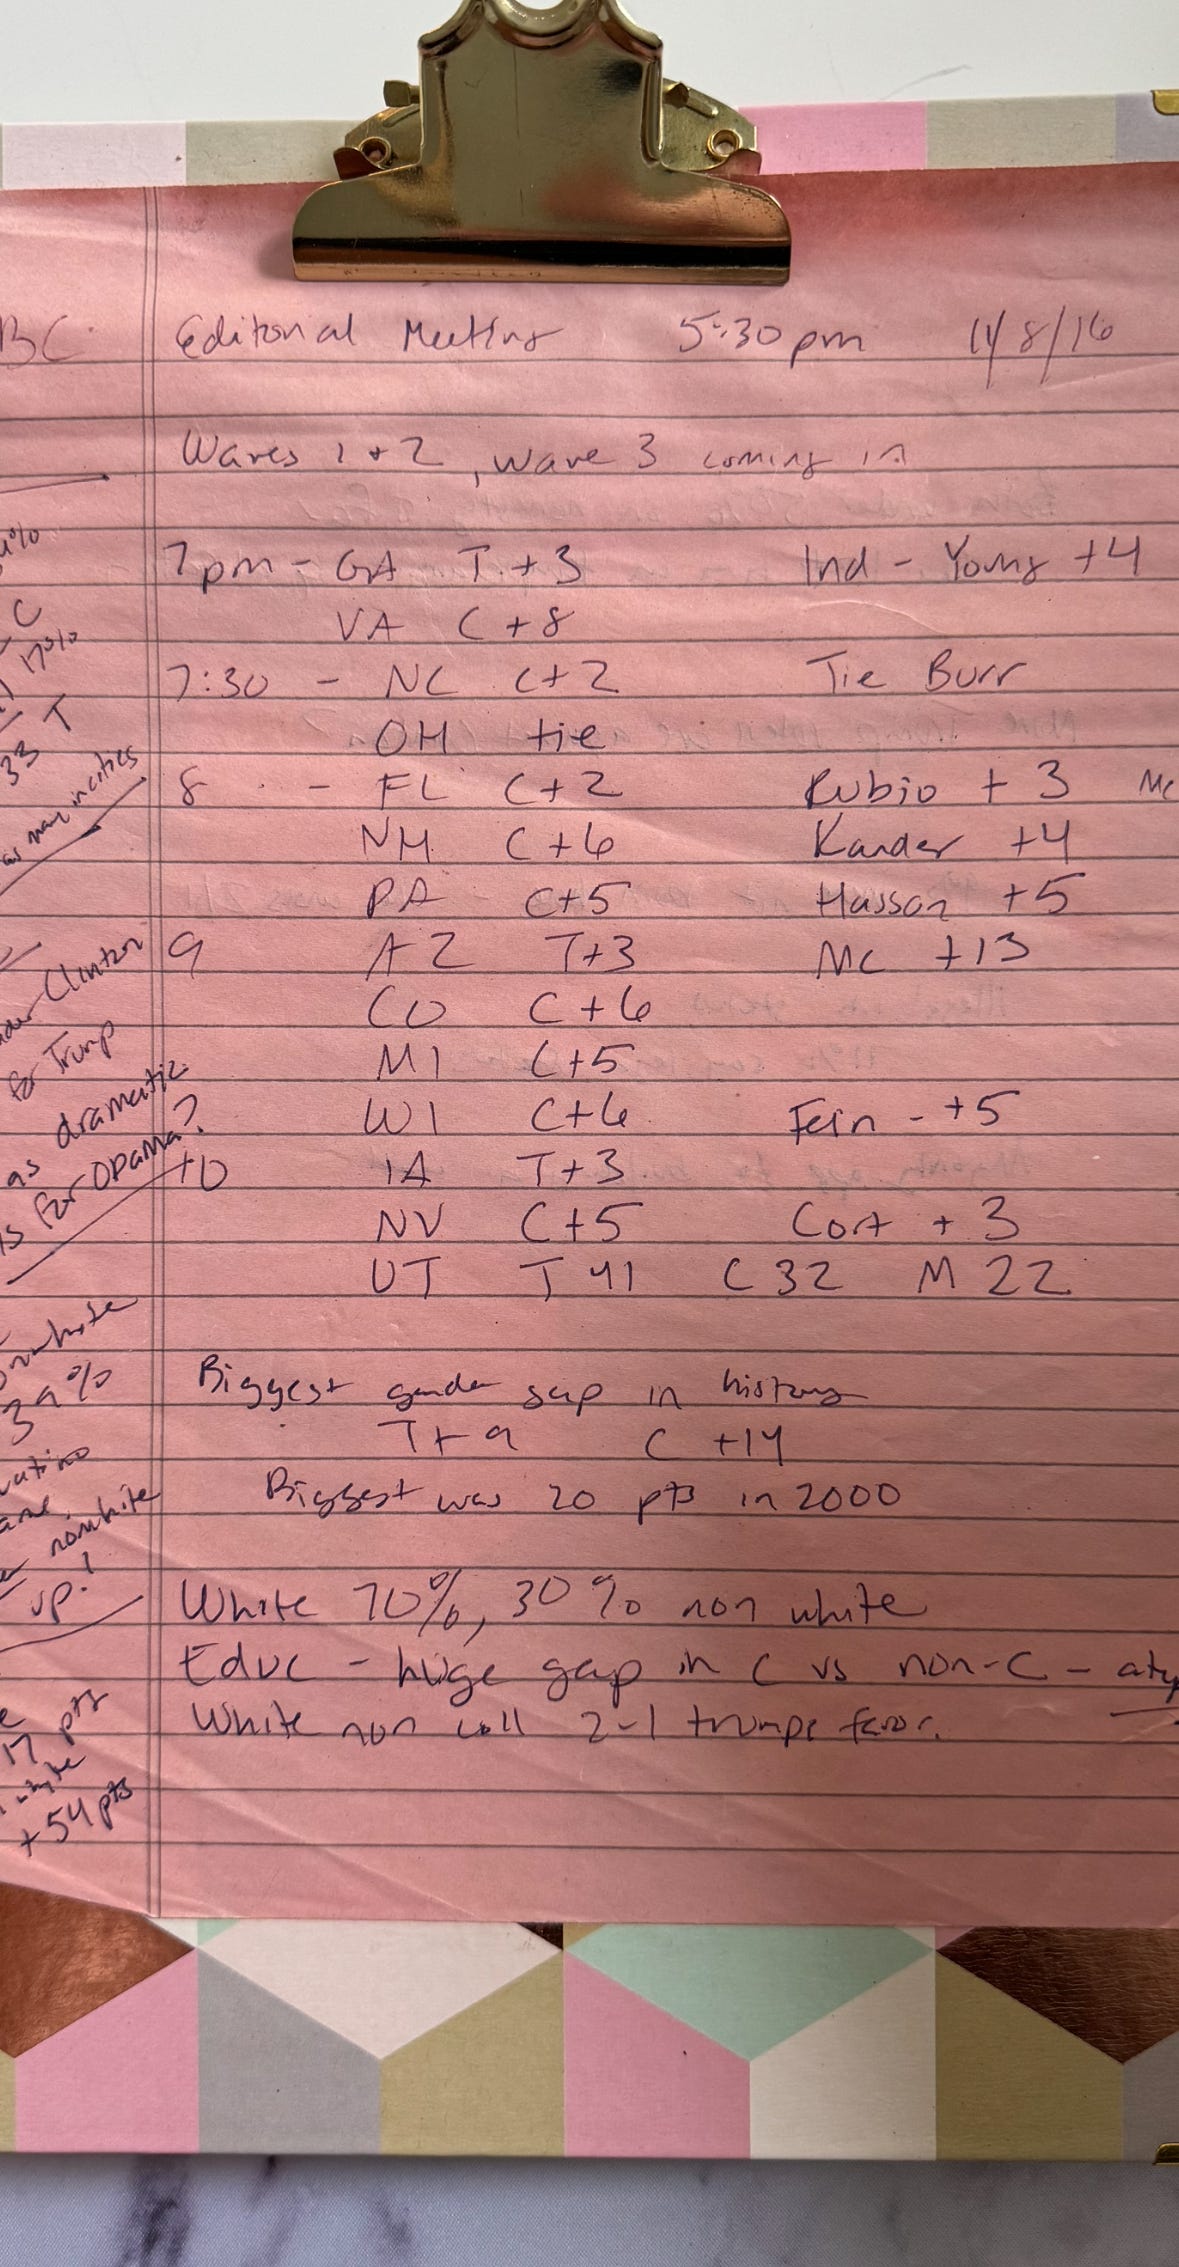 BC Editorial Meeting 5:30pm 11/8/16
Waves 1 + 2, wave 3 coming in
7pm - GA T + 3 Ind - Young +4
VA C + 8
7:30 - NC C+2 Tie Burr
OH tie
8 - FL C+2 Rubio + 3 Mc
NH C+6 Kander +4
PA - C+5 Hassan +5
9 AZ T+3 Mc +13
CO C+6
MI C+5
WI C+6 Fein - +5
10 IA T+3
NV C+5 Cort + 3
UT T 41 C 32 M 22
Biggest gender gap in history
T+9 C +14
Biggest was 20 pts in 2000
White 70%, 30% non white
Educ - huge gap in C vs non-C -
White non coll 2-1 trump favor.
C
17%
33 T
as many in cities
Clinton
for Trump
as dramatic
is for Obama?
nonwhite
39%
nonwhite
up!
17 pts
white
+54 pts